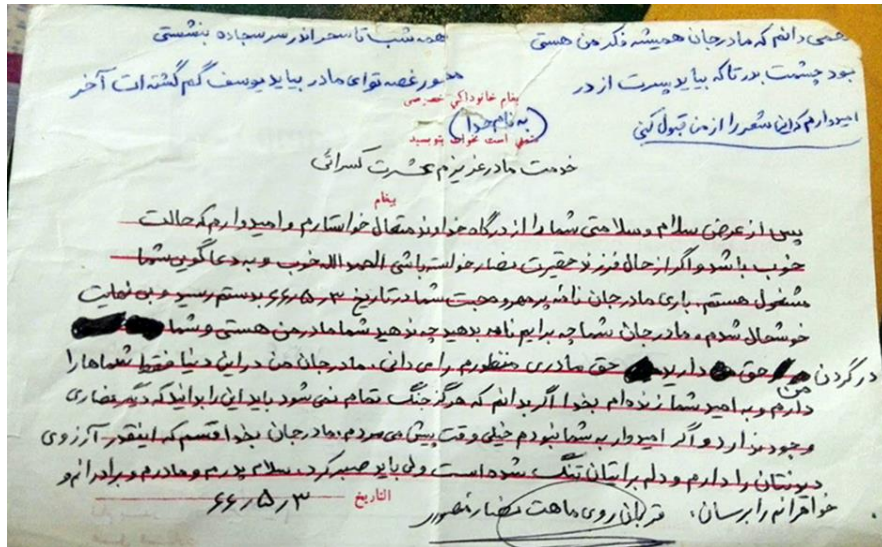 همی دانم که مادرجان همیشه فکر من هستی همه شب تا سحر اندر سر سجاده بنشستی
بود چشمت بدر تا که بیاید پسرت از در مخور غصه تو ای مادر بیاید یوسف گم گشته ات آخر
امیدوارم که این شعر را از من قبول کنی
پیغام خانوداگی خصوصی
(به نام خدا)
متمنی است بخوانا بنویسید
خدمت مادر عزیزم عشرت کسرائی
پیغام
پس از عرض سلام و سلامتی شما را از درگاه خداوند متعال خواستارم و امیدوارم که حالت
خوب باشد و اگر از حال فرزند حقیرت خواسته باشی الحمدالله خوب و به دعاگویی شما
مشغول هستم. باری مادرجان نامه پر مهر و محبت شما در تاریخ ۶۶٫۵٫۳ بدستم رسید و بی نهایت
خوشحال شدم و مادرجان شما چه برایم نامه بدهید چه ندهید شما مادر من هستی و شما
در گردن من حق دارید حق مادری منظورم را می دانی. مادرجان من در این دنیا فقط شماها را
دارم و به امید شما زنده ام بخدا اگر بدانم که هرگز جنگ تمام نمی شود باید این را بدانید که دیگر
وجود ندارد و اگر امیدوار به شما نبودم خیلی وقت پیش می مردم. مادرجان بخدا قسم که اینقدر آرزوی
دیدنتان را دارم و دلم برایتان تنگ شده است ولی باید صبر کرد. سلام پدرم و مادرم و برادرانم و
خواهرانم را برسان. قربان روی ماهت
التاریخ ۶۶٫۵٫۳